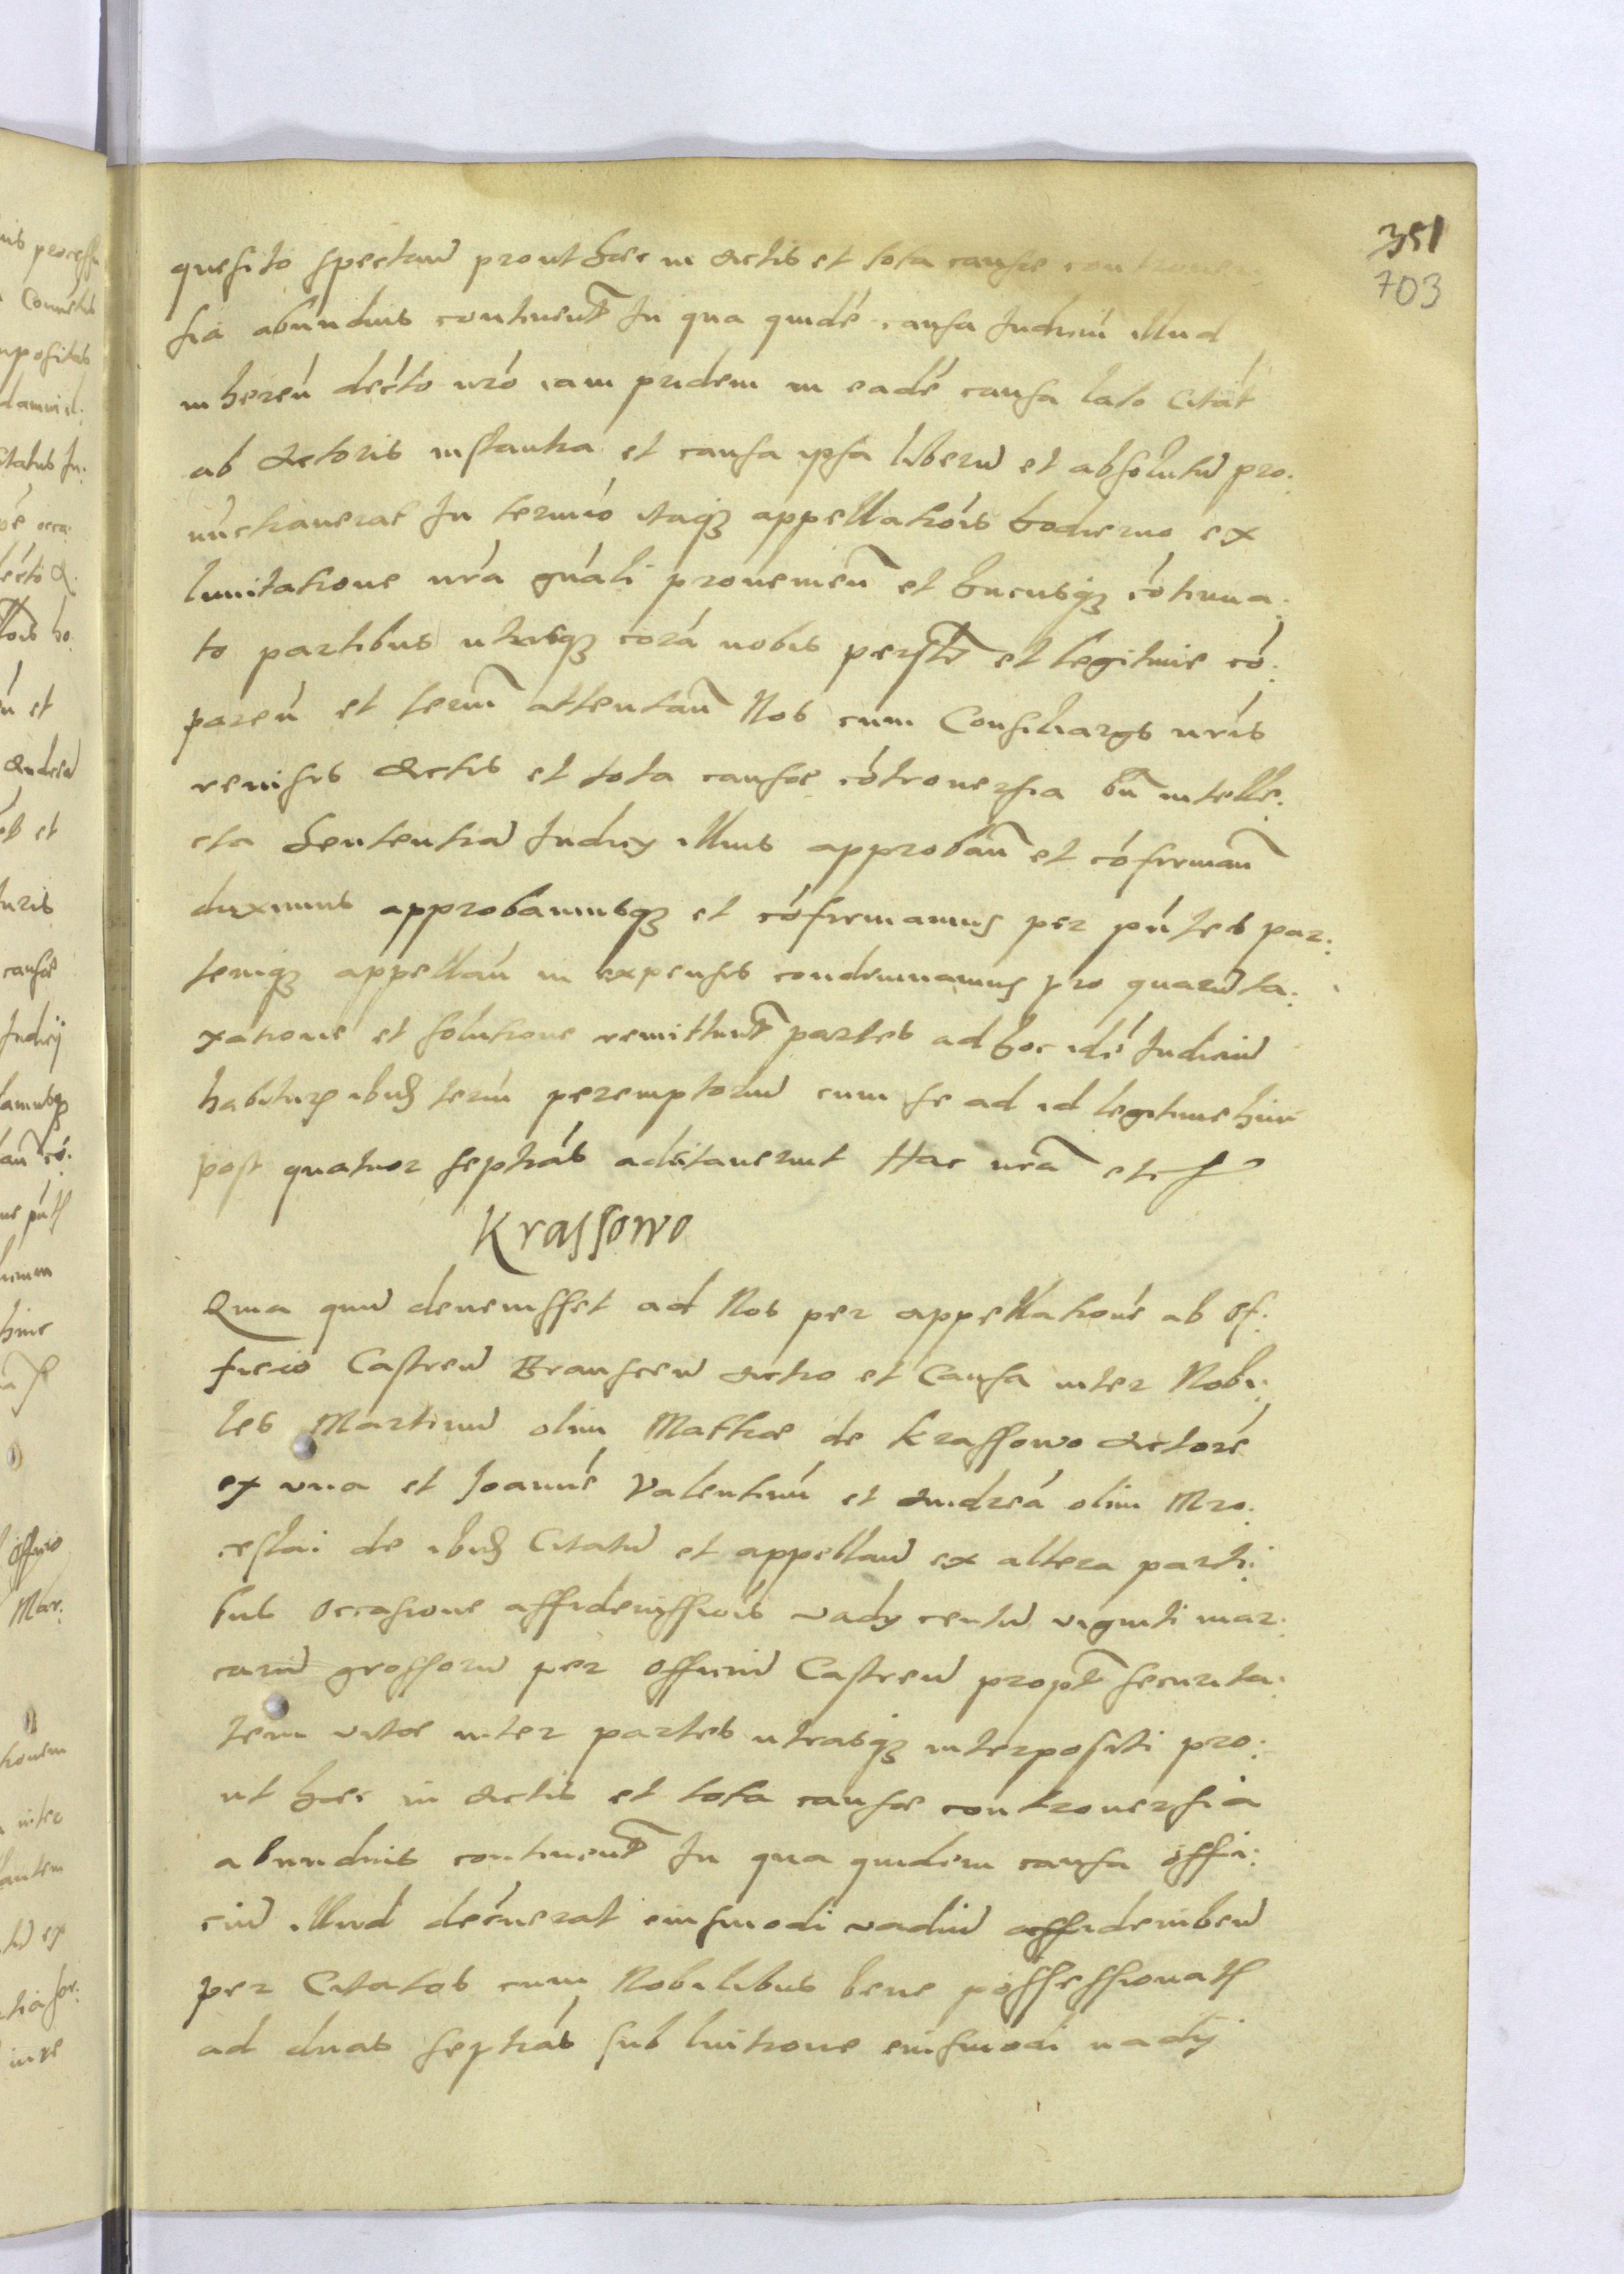 351
703
quesito spectan̄ prout haec in Actis et tota causae controuer
sia abundius continent~ In qua quidē causa Iudiciū illud
inhereń decŕto nr̄o iam pridem in eadē causa lato Citat̄
ab Actoris instantia et causa ipsa liberū et absolutū pro:
nūctiauerat In termīo itaqꝫ appellatiōis hodierno ex
limitatione nr̄a gn̄ali proueniēn et hucusqꝫ cōtinua:
to partibus utrisqꝫ corā nobis persl̄r et legitime cō:
pareń et term̄ attentan̄ Nos cum Consiliarys nr̄is
reuisis Actis et tota causae cōtrouersia bn̄ intelle:
cta Sententiā Iudicy illius approban̄ et cōfirman̄
duximus approbamusqꝫ et cōfirmamus per pn̄tes par:
temqꝫ appellań in expensis condemnamus pro quarū ta:
xatione et solutione remittunt~ partes ad hoc idē Iudiciū
habiturȩ ibidꝫ term̄ peremptoriū cum se ad id legitime hinc
post quatuor septiās adcitauerint Hac nr̄a etc
Krassowo
Quia quū deuenisset ad Nos per appellationē ab Of:
ficio Castren̄ Branscen̄ Actio et Causa inter Nobi:
les Martinū olim Mathiae de Krassowo Actorē
ex vna et Joannē Valentinū et Andreā olim Mro:
ceslai de ibidꝫ Citatū et appellan̄ ex altera parti:
bus Occasione affideiussiōis vady centū viginti mar:
carū grossorū per Officiū Castren̄ propt~ securita:
tem vitae inter partes utrasqꝫ interpositi pro:
ut haec in Actis et tota causae controuersia
abundius continent~ In qua quidem causa offi:
ciū illud decreuerat eiusmodi vadiū affideiuben̄
per Citatos cum Nobilibus bene possessionatꝭ
ad duas septiās sub luitione eiusmodi vadij